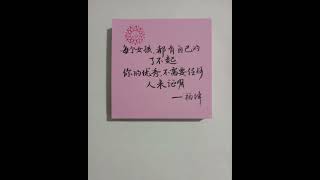 每个女孩都有自己的
了不起
你的优秀不需要任何
人来证明
—杨峰